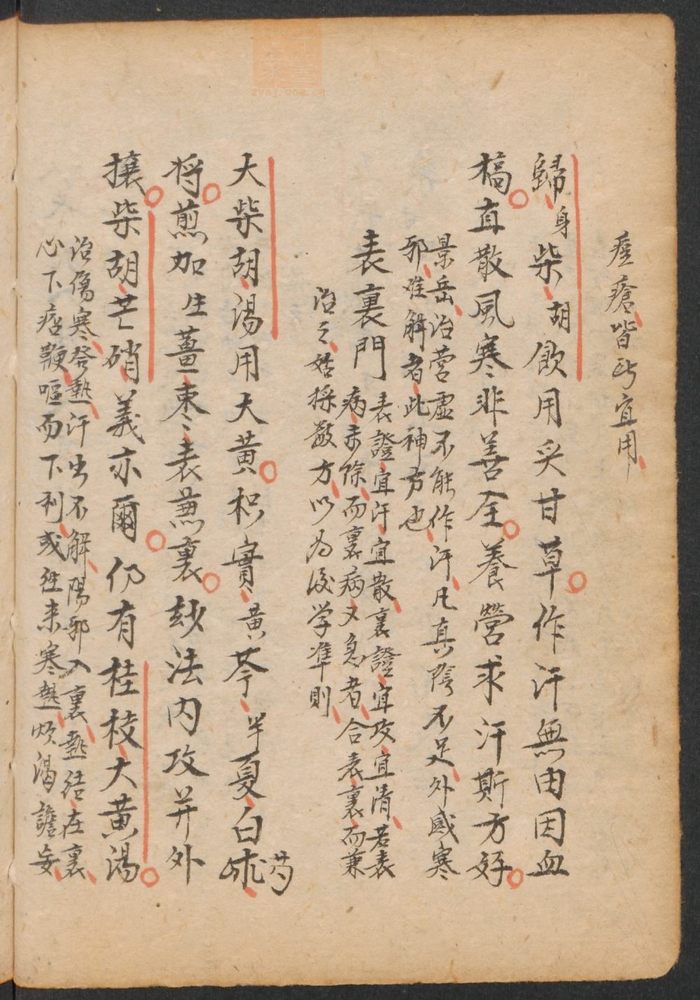 瘧瘡皆可宜用
歸身柴胡飲用炙甘草作汗無由因血
槁直散風寒非善全養營求汗斯方好
景岳治营虛不能作汗凡真陰不足外感寒
邪难解者此神方也
表裏門表證宜汗宜散裏證宜攻宜清若表
病未除而裏病又急者合表裏而兼
治之姑採数方以为後学準則
大柴胡湯用大黄枳實黄芩半夏白芍
将煎加生薑枣表兼裏玅法内攻并外
攘柴胡芒硝義亦爾仍有桂枝大黄湯
治傷寒發熱汗出不解陽邪入裏熱结在裏
心下痞鞕嘔而下利或往来寒熱烦渴譫妄